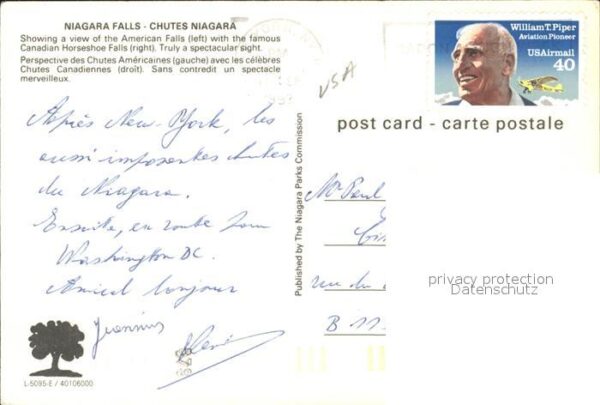 NIAGARA FALLS - CHUTES NIAGARA
Showing a view of the American Falls (left) with the famous
Canadian Horseshoe Falls (right). Truly a spectacular sight.
Perspective des Chutes Américaines (gauche) avec les célèbres
Chutes Canadiennes (droit). Sans contredit un spectacle
merveilleux.
USA
William T. Piper
Aviation Pioneer
USAirmail
40
post card - carte postale
Après New-York, les
aussi imposantes chutes
du Niagara.
Ensuite, en route pour
Washington DC.
Amical bonjour
Published by The Niagara Parks Commission
Mr Paul
rue du
privacy protection
Datenschutz
L-5095-E / 40106000